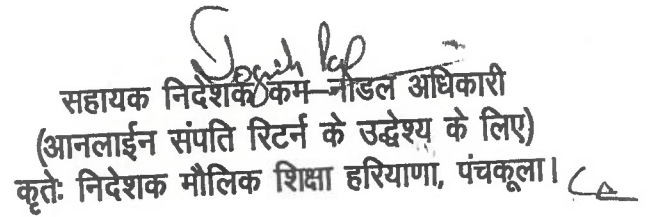 सहायक निदेशक कम नोडल अधिकारी
(आनलाईन संपति रिटर्न के उद्धेश्य के लिए)
कृतेः निदेशक मौलिक शिक्षा हरियाणा, पंचकूला।